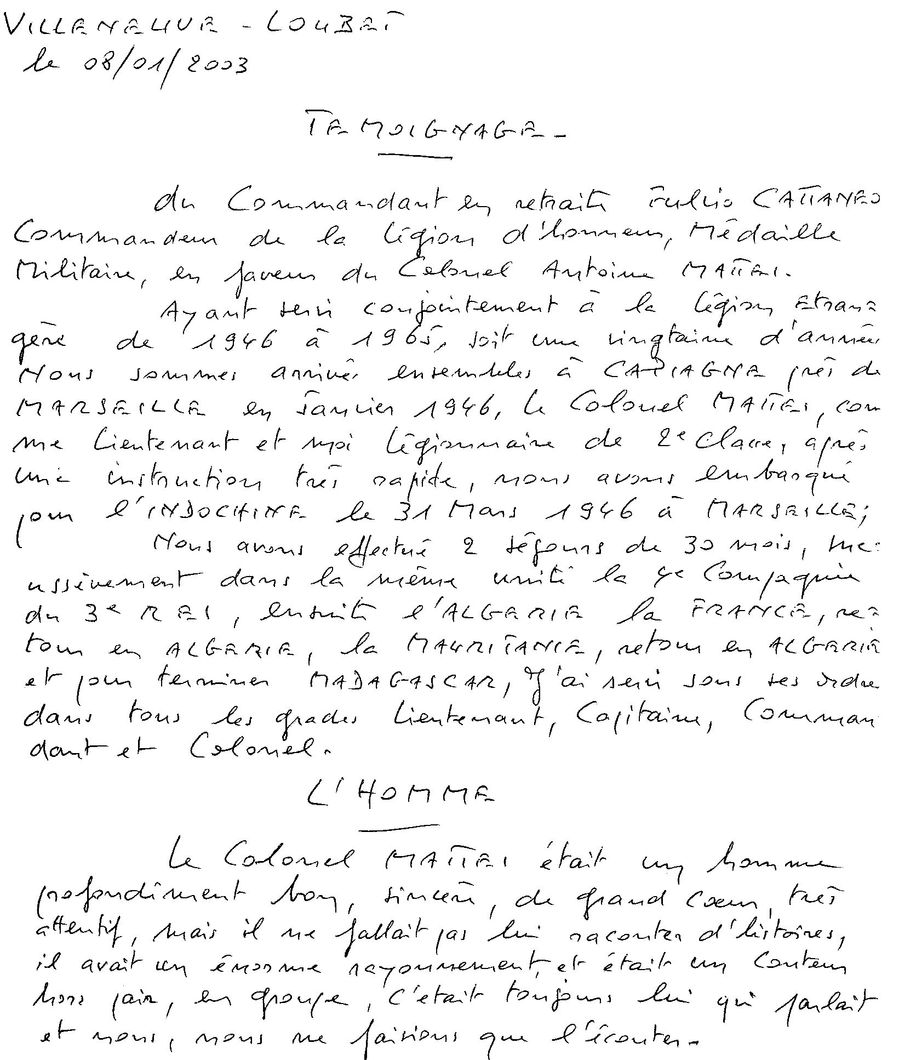 VILLENEUVE - LOUBET
le 08/01/2003
TEMOIGNAGE -
du Commandant en retraite Tulio CATTANEO
Commandeur de la Légion d'honneur, Médaille
Militaire, en faveur du Colonel Antoine MATTEI.
Ayant servi conjointement à la Légion Etran=
gère de 1946 à 1965, soit une vingtaine d'années
Nous sommes arrivés ensembles à CARIAGNE près de
MARSEILLE en Janvier 1946, le Colonel MATTEI, com
me Lieutenant et moi Légionnaire de 2e Classe, après
une instruction très rapide, nous avons embarqué
pour l'INDOCHINE le 31 Mars 1946 à MARSEILLE;
Nous avons effectué 2 séjours de 30 mois, suc=
ussivement dans la même unité la 4e Compagnie
du 3e REI, ensuite l'ALGERIE la FRANCE, re=
tour en ALGERIE, la MAURITANIE, retour en ALGERIE
et pour terminer MADAGASCAR, J'ai servi sous ses ordre
dans tous les grades Lieutenant, Capitaine, Comman
dant et Colonel.
L'HOMME
Le Colonel MATTEI était un homme
profondément bon, sincère, de grand cœur, très
attentif, mais il ne fallait pas lui raconter d'histoires,
il avait un énorme rayonnement, et était un conteur
hors pair, en groupe, c'était toujours lui qui parlait
et nous, nous ne faisions que l'écouter.